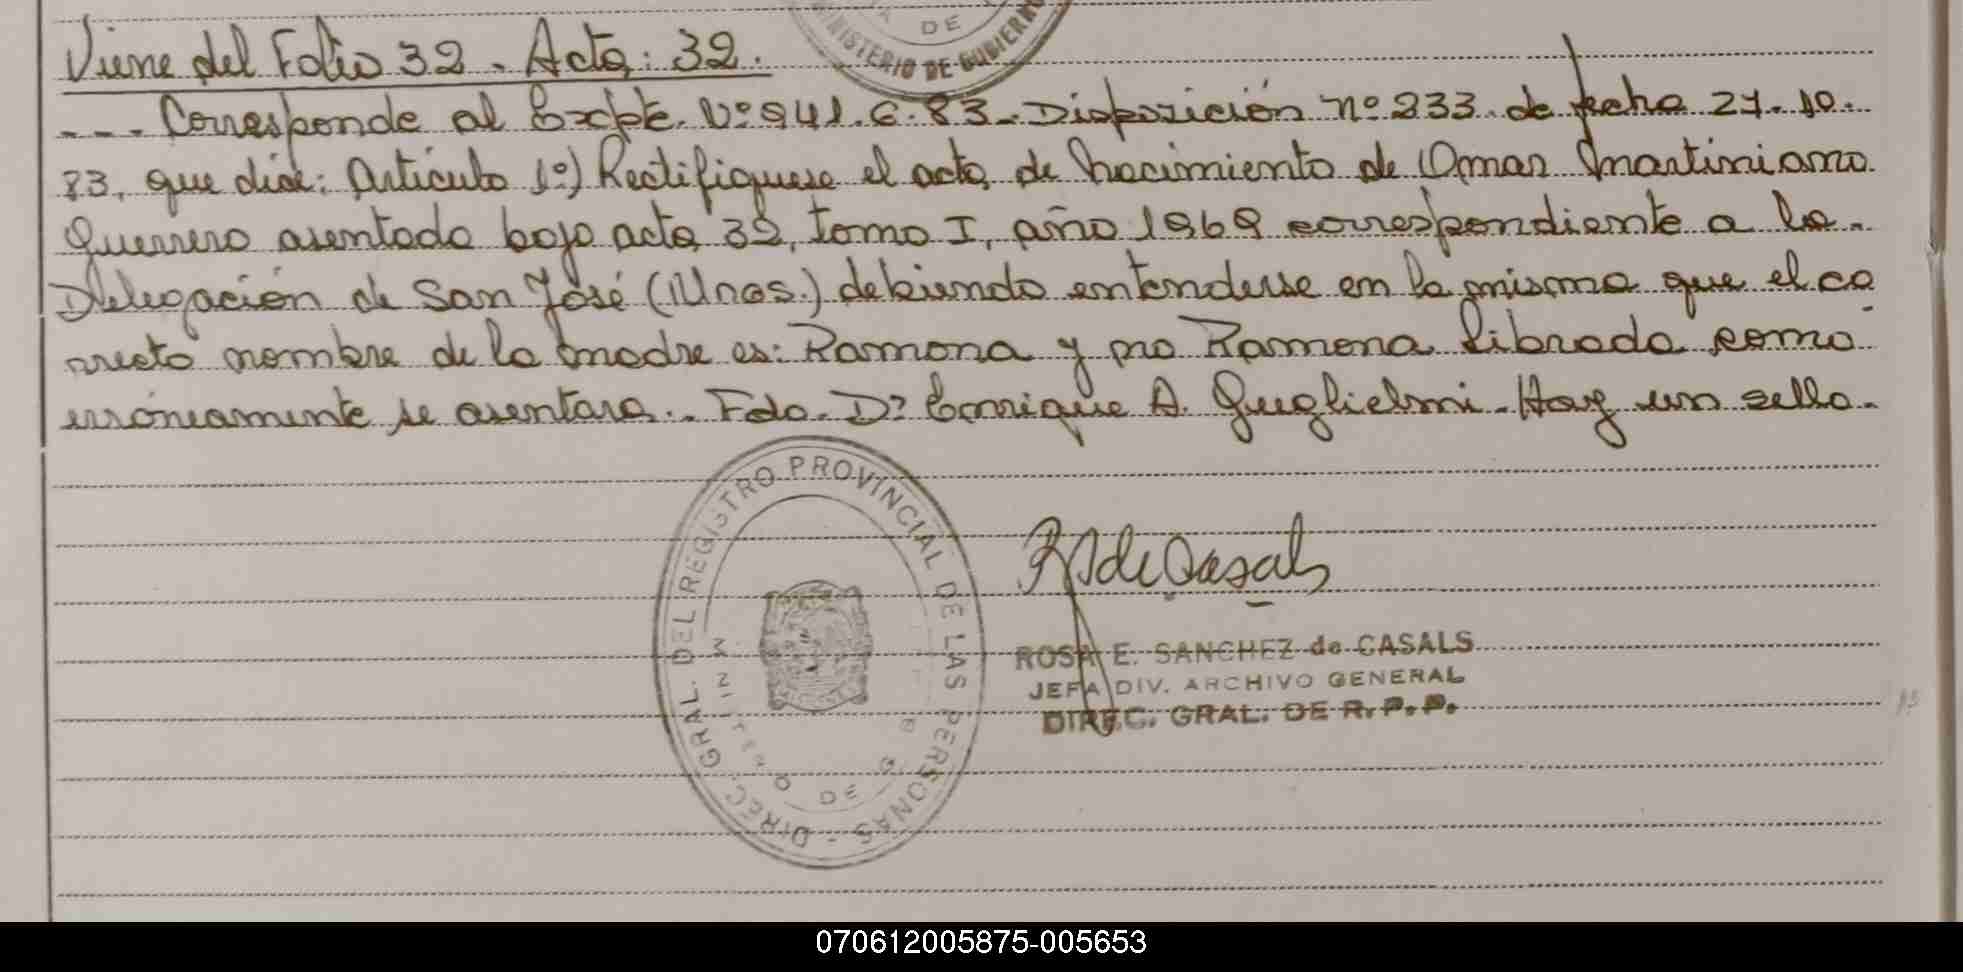 DE
MINISTERIO DE GOBIERNO
Viene del Folio 32. Acta: 32.
---. Corresponde al Expte. Nº 941.G.83. Disposición nº 233 de fecha 27.10.
83, que dice: Artículo 1º) Rectifiquese el acta de nacimiento de Omar Martiniano
Guerrero asentado bajo acta 32, tomo I, año 1969 correspondiente a la
Delegación de San José (Mnes.) debiendo entenderse en la misma que el co
rrecto nombre de la madre es: Ramona y no Ramona Librada como
erróneamente se asentara.. Fdo. Dº Enrique A. Guglielmi. Hay un sello.
DIREC. GRAL. DEL REGISTRO PROVINCIAL DE LAS PERSONAS -
R S de Casals
ROSA E. SANCHEZ de CASALS
JEFA DIV. ARCHIVO GENERAL
DIREC. GRAL. DE R. P. P.
070612005875-005653